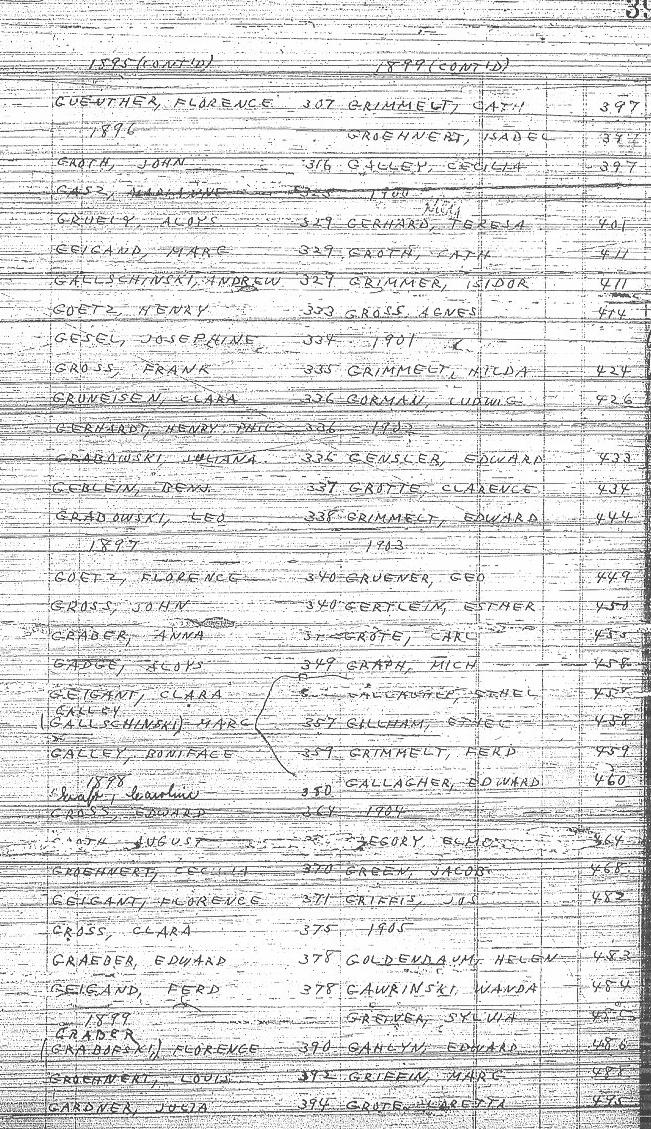 39
1895 (CONT'D)
GUENTHER, FLORENCE 307
1896
GROTH, JOHN 316
GASZ, MARIANNE 325
GRUELY, ALOYS 329
GEIGAND, MARC 329
GALLSCHINSKI, ANDREW 329
GOETZ, HENRY 333
GESEL, JOSEPHINE 334
GROSS, FRANK 335
GRUNEISEN, CLARA 336
GERHARDT, HENRY PHIL 336
GRABOWSKI, JULIANA 336
GEBLEIN, BENJ. 337
GRABOWSKI, LEO 338
1897
GOETZ, FLORENCE 340
GROSS, JOHN 340
GRABER, ANNA
GADGE, ALOYS 349
GEIGANT, CLARA
GALLEY
(GALLSCHINSKI) MARC 357
GALLEY, BONIFACE 359
1898
Caroline 350
GROSS, EDWARD 364
AUGUST
GROEHNERT, CECILIA 370
GEIGANT, FLORENCE 371
GROSS, CLARA 375
GRAEBER, EDWARD 378
GEIGAND, FERD 378
1899
GRABER
(GRABOFSKI) FLORENCE 390
GROEHNERT, LOUIS 392
GARDNER, JULIA 394
1899 (CONT'D)
GRIMMELT, CATH 397
GROEHNERT, ISABEL 397
GALLEY, CECILIA 397
1900
GERHARD, TERESA 401
GROTH, CATH 411
GRIMMER, ISIDOR 411
GROSS, AGNES 414
1901
GRIMMELT, HILDA 424
GORMAN, LUDWIG 426
1902
GENSLER, EDWARD 433
GROTTE, CLARENCE 434
GRIMMELT, EDWARD 444
1903
GRUENER, GEO 449
GERTLEIN, ESTHER 450
GROTE, CARL 455
GRAPH, MICH 458
GALLAGHER, ETHEL
GILLHAM, ETHEL 458
GRIMMELT, FERD 459
GALLAGHER, EDWARD 460
1904
GREGORY, ELMO 464
GREEN, JACOB 468
GRIFFIS, JOS 482
1905
GOLDENBAUM, HELEN 483
GAWRINSKI, WANDA 484
GREINER, SYLVIA 485
GAHLYN, EDWARD 486
GRIFFIN, MARG 488
GROTE, LORETTA 495